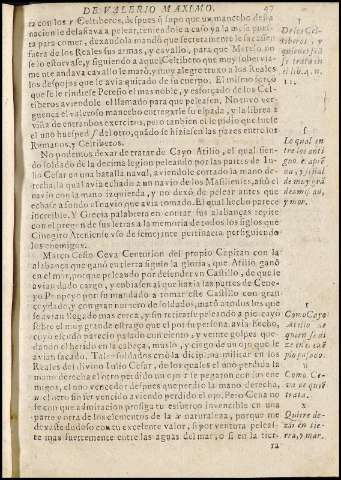 DE VALERIO MAXIMO. 47
ra con los r Celtiberos, despues q̃ supo que un mancebo desta
nacion le desafiava a pelear, teniendole a caso ya la mesa pues-
ta para comer, dexandola mandò que secretamente le sacassen
fuera de los Reales sus armas, y cavallo, para que Metelo no
se lo estorvase, y siguiendo a aquel Celtibero que muy sobervia-
mente andava cavallo le matò, y muy alegre truxo a los Reales
los despojos que le avia quitado de su cuerpo. El mismo hizo
que se le rindiese Pereso el mas noble, y esforçado de los Cel-
tiberos aviendole el llamado para que pelease. No tuvo ver-
guença el valeroso mancebo entregarle su espada, y la librea a
vista de entrambos exercitos, pero tambien el le pidio que fuese
el uno huesped s del otro, quãdo se hiziesen las pazes entre los
Romanos, y Celtiberos.
No podemos dexar de tratar de Cayo Atilio, el qual sien-
do soldado de la decima legion peleando por las partes de Iu-
lio Cesar en una batalla naval, aviendole cortado la mano de-
recha, la qual avia echado a un navio de los Masilienses, asió el
navio con la mano izquierda, y no dexò de pelear antes que
echase a fondo el navio que avia tomado. El qual hecho parece
increible. Y Grecia palabrera en contar sus alabanças repite
con el pregon de sus letras a la memoria de todos los siglos que
Cinegiro Ateniense usò de semejante pertinacia persiguiendo
los enemigos.
Marco Cesio Ceva Centurion del propio Capitan con la
alabança que ganó en tierra siguio la gloria, que Atilio ganò
en el mar, porque peleando por defender un Castillo, de que le
avian dado cargo, y
Pompeyo por su mandado a tomar este Castillo con gran
cuydado, y con gran numero de soldados, matò a todos los que
se avian llegado mas cerca, y sin retirarse peleando a pie cayò
sobre el muy grande estrago que el por su persona avia hecho,
cuyo escudo parecio pasado con ciento, y veynte golpes que-
dando el herido en la cabeça, muslo, y ciego de un ojo que le
avian sacado. Tales soldados criò la disciplina militar en los
Reales del divino Iulio Cesar, de los quales el uno perdida la
mano derecha el otro perdido un ojo t se pegaron con sus ene-
migos, el uno vencedor despues que perdio la mano derecha,
u el otro sin ser vencido aviendo perdido el ojo. Pero Ceva no
se con que admiracion prosiga tu esfuerço invencible en una
parte y otra de los elementos de la x naturaleza, porque me
dexaste dudoso con tu excelente valor, si por ventura peleas-
te mas fuertemente entre las aguas del mar, o si en la tier-
ra
r
De los Cel-
tiberos, y
quienes seã
se trata en
el lib. 4. n.
12,
s
Lo qual en
tre los anti
guos e aprõ
va, y señal
de muy grã
de amistad,
y amor.
t
Como Cayo
Atilio de
quien se di
ze en el ca-
pio pasado.
u
Como Ce-
va de quiẽ
trata.
x
Quiere de-
zir en tier-
ra, y mar.